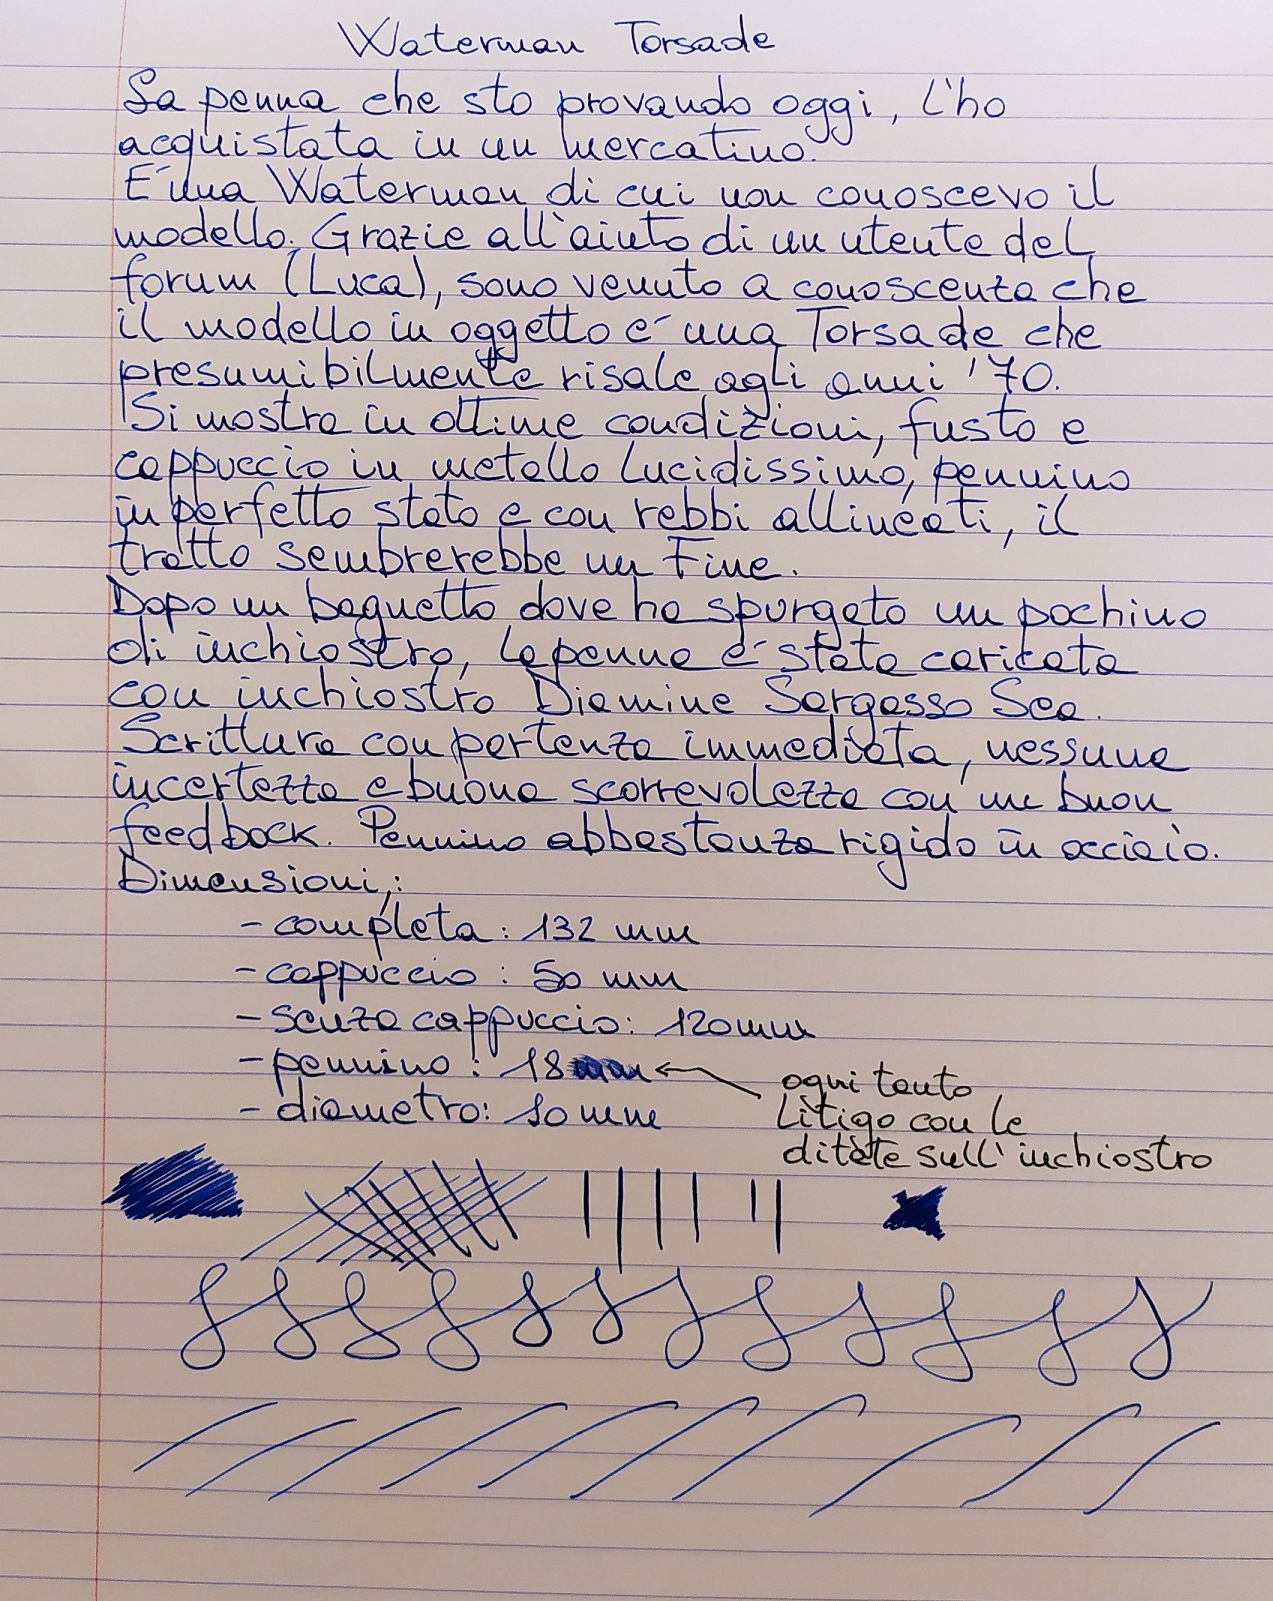 Waterman Torsade
La penna che sto provando oggi, l'ho
acquistata in un mercatino.
E' una Waterman di cui non conoscevo il
modello. Grazie all'aiuto di un utente del
forum (Luca), sono venuto a conoscenza che
il modello in oggetto e' una Torsade che
presumibilmente risale agli anni '70.
Si mostra in ottime condizioni, fusto e
cappuccio in metallo lucidissimo, pennino
in perfetto stato e con rebbi allineati, il
tratto sembrerebbe un Fine.
Dopo un bagnetto dove ha spurgato un pochino
di inchiostro, la penna e' stata caricata
con inchiostro Diamine Sargasso Sea.
Scrittura con partenza immediata, nessuna
incertezza e buona scorrevolezza con un buon
feedback. Pennino abbastanza rigido in acciaio.
Dimensioni:
- completa: 132 mm
- cappuccio: 50 mm
- senza cappuccio: 120 mm
- pennino: 18 mm
- diametro: 10 mm
ogni tanto
litigo con le
ditate sull'inchiostro